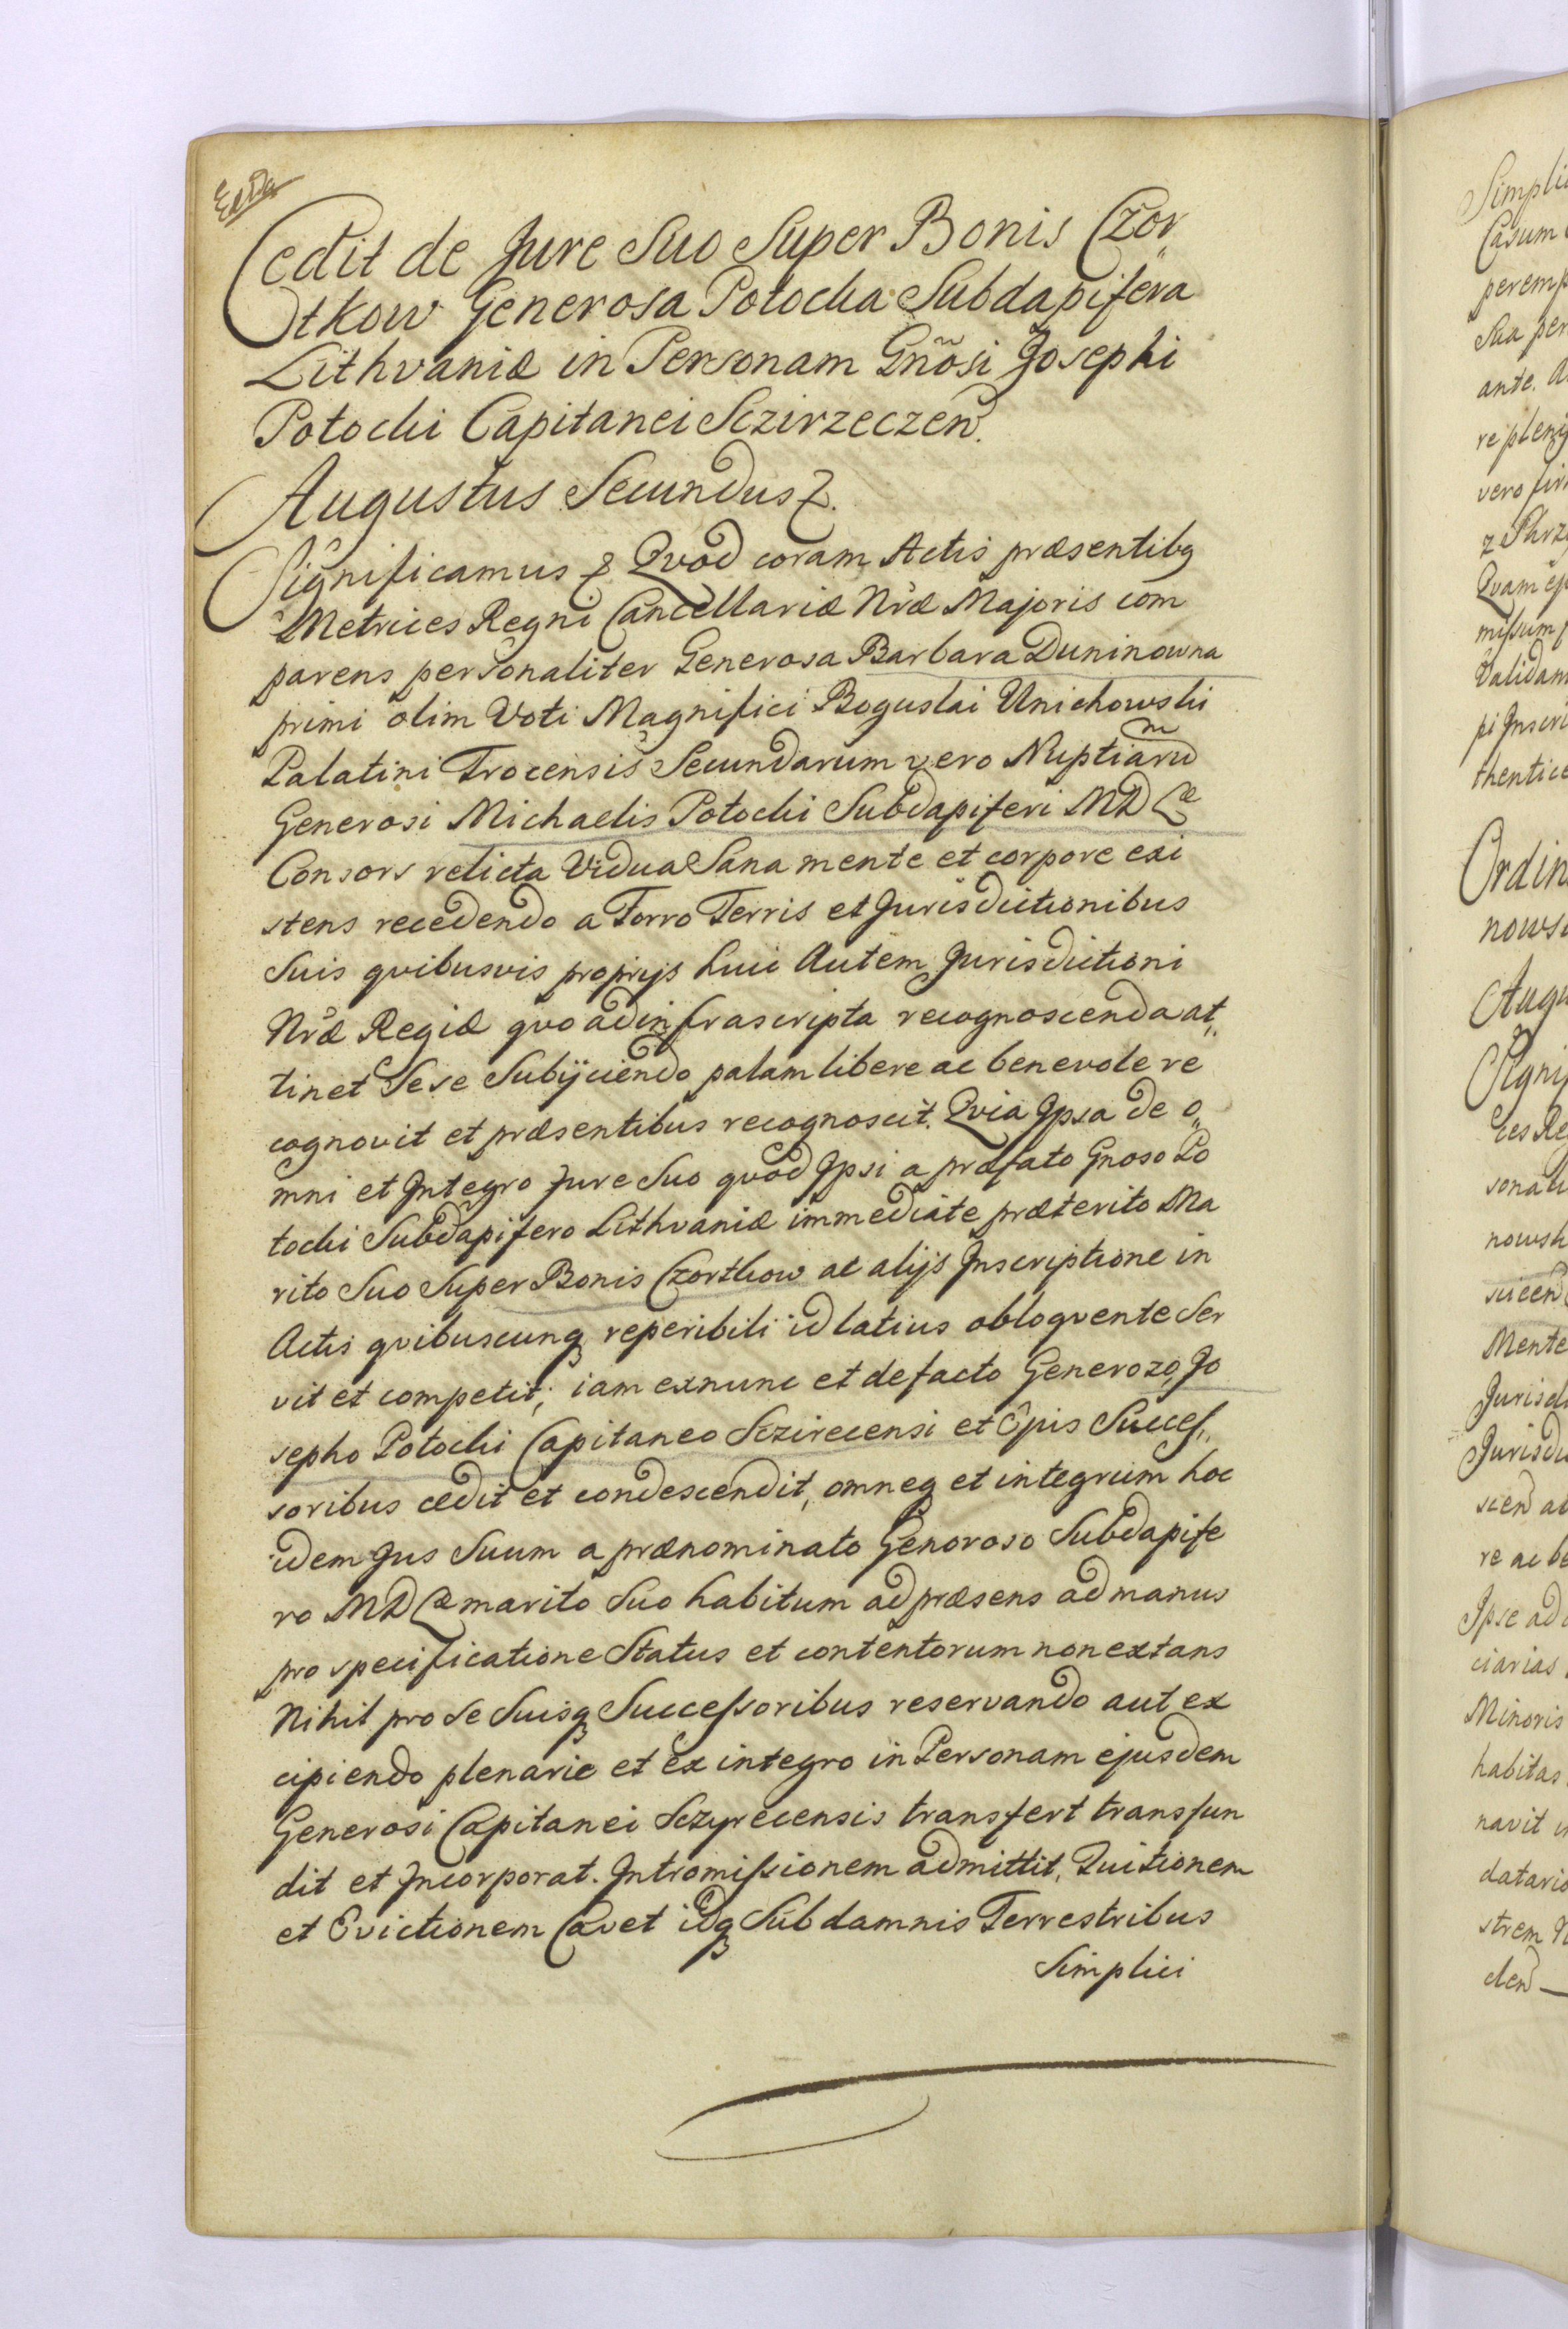 Cedit de Jure Suo Super Bonis Czor„
tkow Generosa Potocka Subdapifera
Lithvaniæ in Personam Gñosi Josephi
Potocki Capitanei Sczirzeczeń.
Augustus Secundus
Significamus Qvod coram Actis præsentibꝫ
Metrices Regni Cancellariæ Nr̃æ Majoris com
parens personaliter Generosa Barbara Duninowna
primi olim Voti Magnifici Boguslai Unichowski
Palatini Trocensis Secundarum vero Nuptiaru͠
Generosi Michaelis Potocki Subdapiferi MDLæ
Consors relicta Vidua Sana mente et corpore exi
stens recedendo a Forro Terris et Jurisdictionibus
Suis qvibusvis proprijs huic Autem Jurisdictioni
Nr̃æ Regiæ qvo ad infrascripta recognoscenda at„
tinet Sese Subijciendo palam libere ac benevole re
cognovit et præsentibus recognoscit. Qvia Ipsa de o„
mni et Integro Jure Suo qvod Ipsi a præfato Gnoso Po
tocki Subdapifero Lithvaniæ immediate præterito Ma
rito Suo Super Bonis Czortkow ac alijs Inscriptione in
Actis qvibuscunqꝫ reperibili id latius obloqvente Ser
vit et competit; iam exnunc et defacto Generozo Jo
sepho Potocki Capitaneo Sczirecensi et Ejus Succeſ„
soribus cedit et condescendit, omneqꝫ et integrum hoc
idem Jus Suum a prænominato Genoroso Subdapife
ro MDLæ marito Suo habitum ad præsens ad manus
pro specificatione Status et contentorum non extans
Nihil pro Se Suisqꝫ Succeſsoribus reservando aut ex
cipiendo plenarie et ex integro in Personam ejusdem
Generosi Capitanei Sczyrecensis transfert transfun
dit et Incorporat. Intromiſsionem admittit, Quitionem
et Evictionem Cavet idqꝫ Sub damnis Terrestribus
Simplici
Simpli
Casum
peremp
Sua per
ante.
re plen
vero fir
Qvam
miſsum
Validam
pi Inscri
thentice
Ordin
nows
Augu
Signif
ces Re
sonali
nowsk
Mente
Jurisdi
Jurisdi
scen ad
re ac be
Ipse ad
ciarias
Minoris
habitas
navit
datario
strem
den